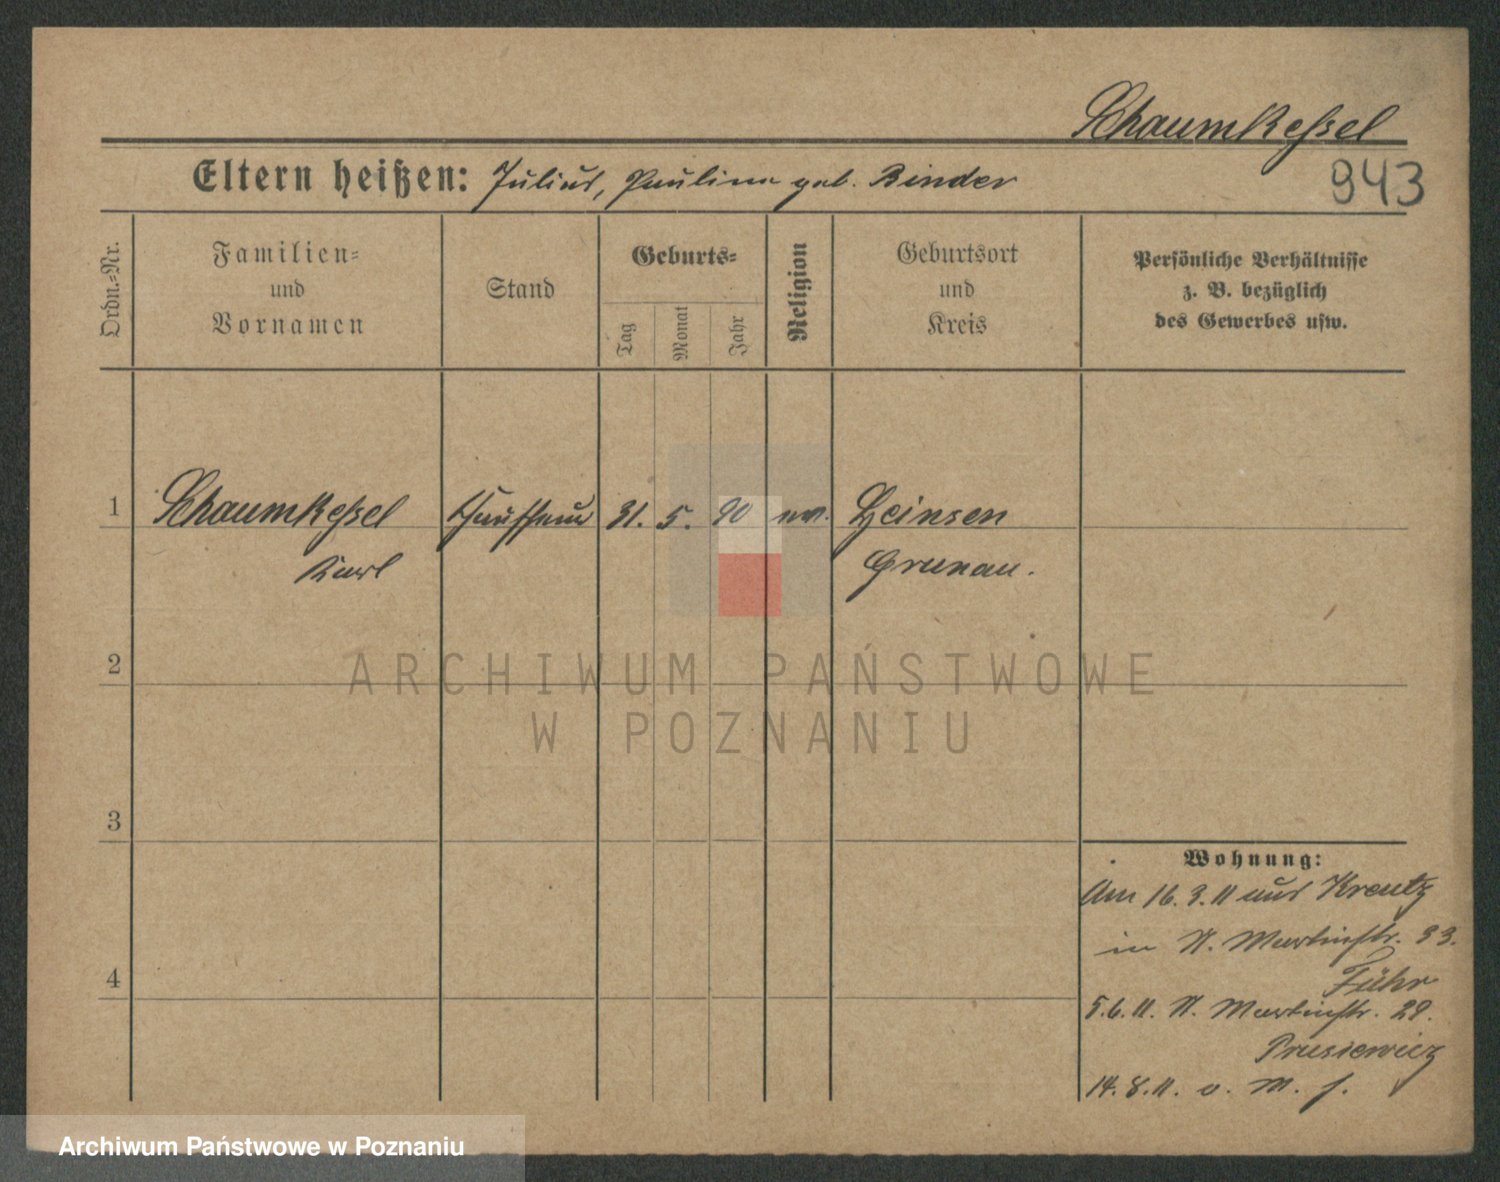 Schaumkessel
Eltern heißen: Julius, Pauline geb. Binder
943
Ordn.-Nr.
Familien-
und
Vornamen
Stand
Geburts-
Tag
Monat
Jahr
Religion
Geburtsort
und
Kreis
Persönliche Verhältnisse
z. B. bezüglich
des Gewerbes usw.
1
Schaumkessel
Karl
31. 5. 90
Heinsen
Gronau.
2
ARCHIWUM PAŃSTWOWE
W POZNANIU
3
Wohnung:
Am 16. 3. 11 aus Kreutz
in St. Martinstr. 33.
Führ
4
5. 6. 11. St. Martinstr. 29.
Prusiewicz
14. 8. 11. o. M. f.
Archiwum Państwowe w Poznaniu